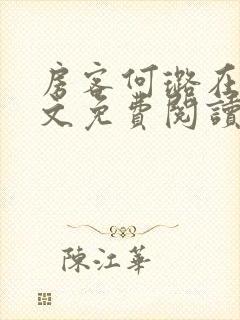 房客何璐在
文免費閱讀
陳江華